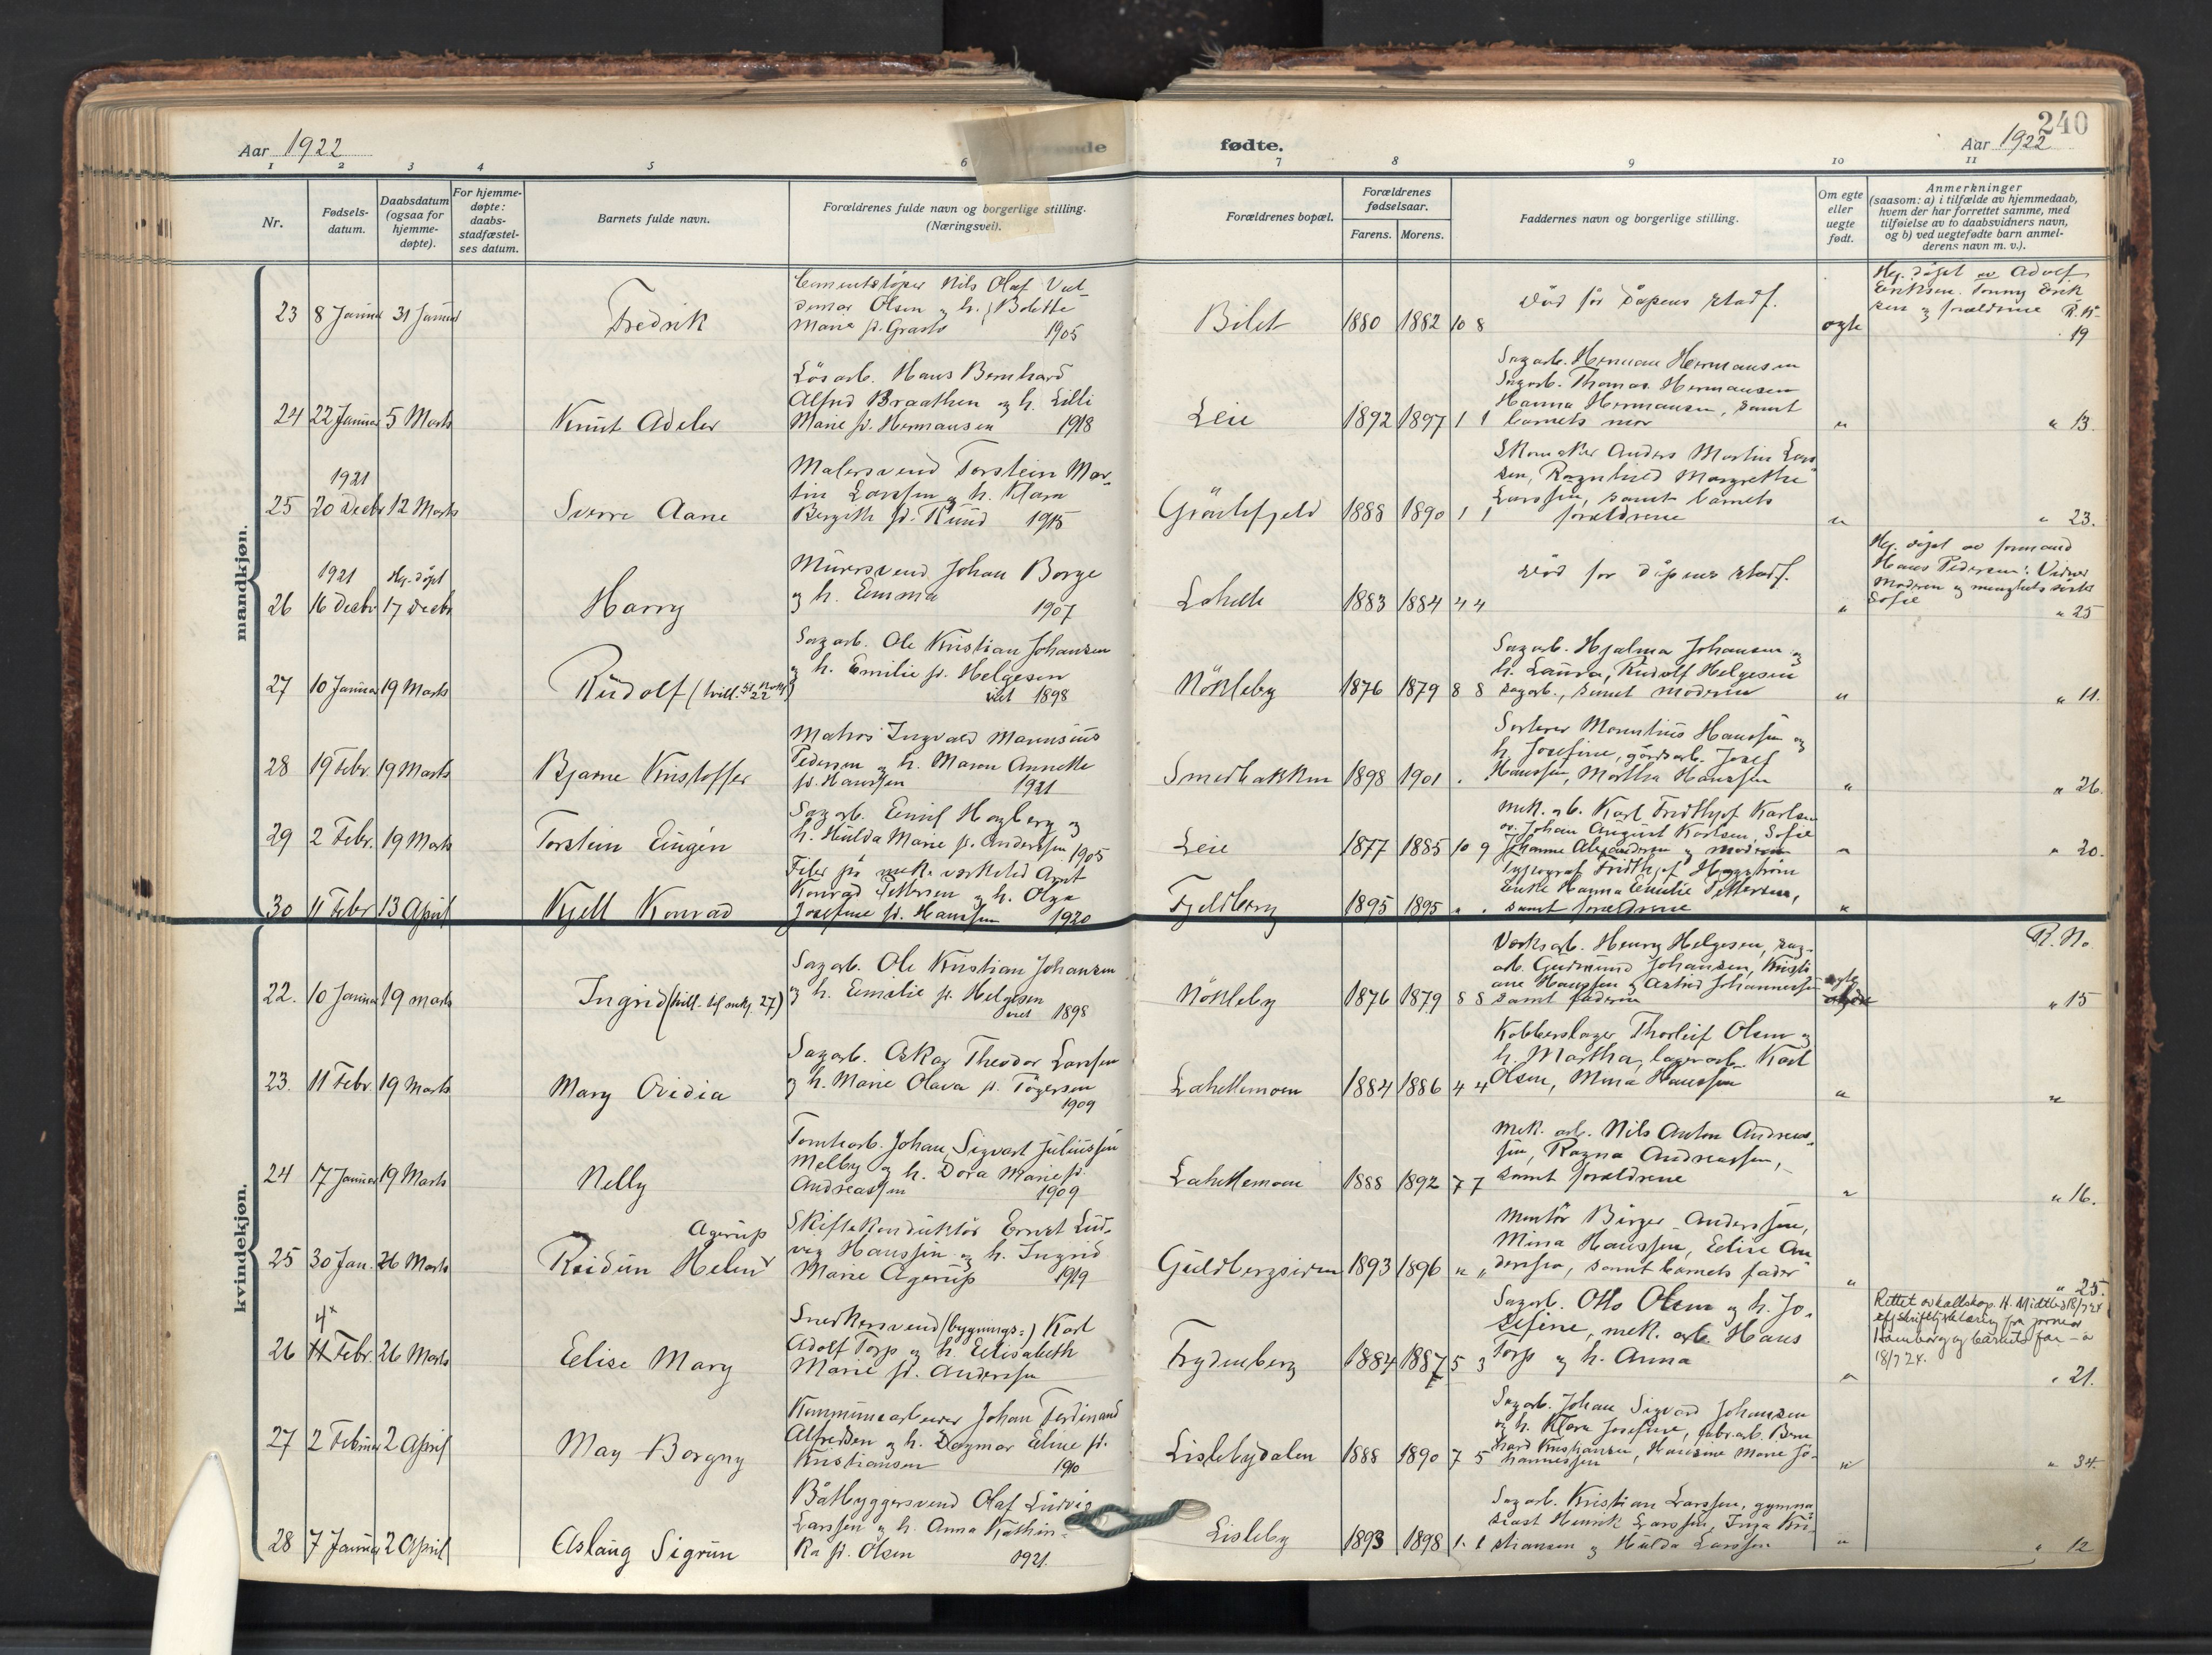 240
Aar 1922
fødte.
Aar 1922
1 2 3 4 5 6 7 8 9 10 11
Nr.
Fødsels-
datum.
Daabsdatum
(ogsaa for
hjemme-
døpte).
For hjemme-
døpte:
daabs-
stadfæstel-
ses datum.
Barnets fulde navn.
Forældrenes fulde navn og borgerlige stilling.
(Næringsvei).
Forældrenes bopæl.
Forældrenes
fødselsaar.
Farens. Morens.
Faddernes navn og borgerlige stilling.
Om egte
eller
uegte
født.
Anmerkninger
(saasom: a) i tilfælde av hjemmedaab,
hvem der har forrettet samme, med
tilføielse av to daabsvidners navn,
og b) ved uegtefødte barn anmel-
derens navn m. v.).
mandkjøn.
23 8 Januar 31 Januar
Fredrik
Cementstøper Nils Olaf Val
demar Olsen og h. Bolette
Marie f.
1905
Bilet
1880 1882 10 8
Død før dåpens stadf.
egte
Hj. døpt av Adolf
Eriksen. Erik
sen og forældrene
19
24 22 Januar 5 Marts
Knut Adeler
Løsarb. Hans Bernhard
Alfred Braathen og h. Lilli
Marie f. Hermansen 1918
Leie
1892 1897 1 1
Sagarb. Herman Hermansen
Sagarb. Thomas Hermansen
Hanna Hermansen, samt
barnets mor
" " 13.
1921
25 20 Decbr 12 Marts
Sverre Aane
Malersvend Torstein Mar-
tin Larssen og h. Klara
Bergith f. Knud 1915
Grönlifjeld
1888 1890 1 1
Skomaker Anders Martin Lars
sen, Ragnhild Margrethe
Larssen, samt barnets
forældrene
" " 23.
1921 Hj. døpt
26 16 Decbr 17 Decbr
Harry
Murersvend Johan Borge
og h. Emma
1907
Lahelle
1883 1884 4 4
Død før dåpens stadf.
"
Hj. døpt av formand
Hans Pedersen. Vidner
Moderen og menighets søster
Sofie
" 25
27 10 Januar 19 Marts
Rudolf
Sagarb. Ole Kristian Johansen
og h. Emilie f. Helgesen
viet 1898
Nökleby
1876 1879 8 8
Sagarb. Hjalmar Johansen og
h. Laura, Rudolf Helgesen
sagarb., samt moderen
" " 11.
28 19 Febr. 19 Marts
Bjarne Kristoffer
Matros Ingvald Marensius
Pedersen og h. Maren Annette
f. Hanssen 1921
Smedbakken
1898 1901
Sorterer Mauritius Hanssen og
h. Josefine, gårdsarb. Josef
Hanssen, Martha Hanssen
" " 26.
29 2 Febr. 19 Marts
Torstein Eugén
Sagarb. Emil Hagberg og
h. Hulda Marie f. Anderssen 1905
Leie
1877 1885 10 9
Mek. arb. Karl Fridthjof Karlsen
Johan August Karlsen, Sofie
Johanne Alexandersen og moderen
" " 20.
30 11 Febr 13 April
Kjell Konrad
Filer på mek. værksted Arnt
Konrad Pettersen og h. Olga
Josefine f. Hanssen 1920
Fjeldberg
1895 1895
Typograf Fridthjof Heggström
Enke Hanna Emilie Pettersen,
samt forældrene
"
kvindekjøn.
R. No.
22. 10 Januar 19 marts
Ingrid (tvill. til mkj. 27)
Sagarb. Ole Kristian Johansen
og h. Emilie f. Helgesen
viet 1898
Nökleby
1876 1879 8 8
Verksarb. Henry Helgesen, sag-
arb. Gudmund Johansen, Kristi
ane Hanssen og Astrid Johannessen
samt faderen
egte
" 15
23. 11 Febr. 19 Marts
Mary Ovidia
Sagarb. Oskar Theodor Larssen
og h. Marie Olava f. Tögersen
1909
Lahellemoen
1884 1886 4 4
Kobberslager Thorleif Olsen og
h. Martha, lagerarb. Karl
Olsen, Mina Hanssen
" "
24 17 Januar 19 Marts
Nelly
Tomtearb. Johan Sigvart Juliussen
Melby og h. Dora Marie f.
Andreassen 1909
Lahellemoen
1888 1892 7 7
Mek. arb. Nils Anton Andreas-
sen, Ragna Andreassen,
samt forældrene
" " 16.
25 30 Jan. 26 Marts
Agerup
Reidun Helene
Skiftekonduktör Ernst Lud-
vig Hanssen og h. Ingrid
Marie Agerup 1919
Guldbergsiden
1893 1896 " "
Montör Birger Anderssen,
Mina Hanssen, Edise An
derssen, samt barnets fader
" " 25.
4
26 11 Febr. 26 Marts
Edise Mary
Snekkersvend (bygnings-) Karl
Adolf Torp og h. Elisabeth
Marie f. Anderssen
Frydenberg
1884 1887 5 3
Sagarb. Otto Olsen og h. Jo-
sefine, mek. arb. Hans
Torp og h. Anna
"
Rettet av kallskap. H. 18/7 24
barnets far
18/7 24.
" 21.
27 2 Februar 2 April
May Borgny
Kommunearbeider Johan Ferdinand
Alfredsen og h. Dagmar Eline f.
Kristiansen 1910
Lislebydalen
1888 1890 7 5
Sagarb. Johan Sigvard Johansen
og h. Klara Josefine, fabr.arb. Bern
hard Kristiansen, Hansine Marie Jo-
hannessen
" " 34.
28 7 Januar 2 April
Aslaug Sigrun
Båtbyggersvend Olaf Ludvig
Larssen og h. Anna Kathin-
ka f. Olsen 1921.
Lisleby
1893 1898 1 1
Sagarb. Kristian Larssen, gymna
siast Henrik Larssen, Inga Kri-
stiansen og Hulda Larssen
" " 12